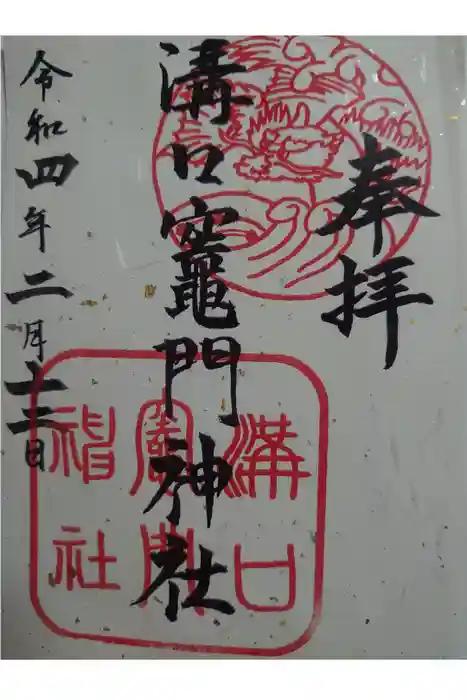 奉拝
溝口竈門神社
令和四年二月十三日
溝口
竈門
神社